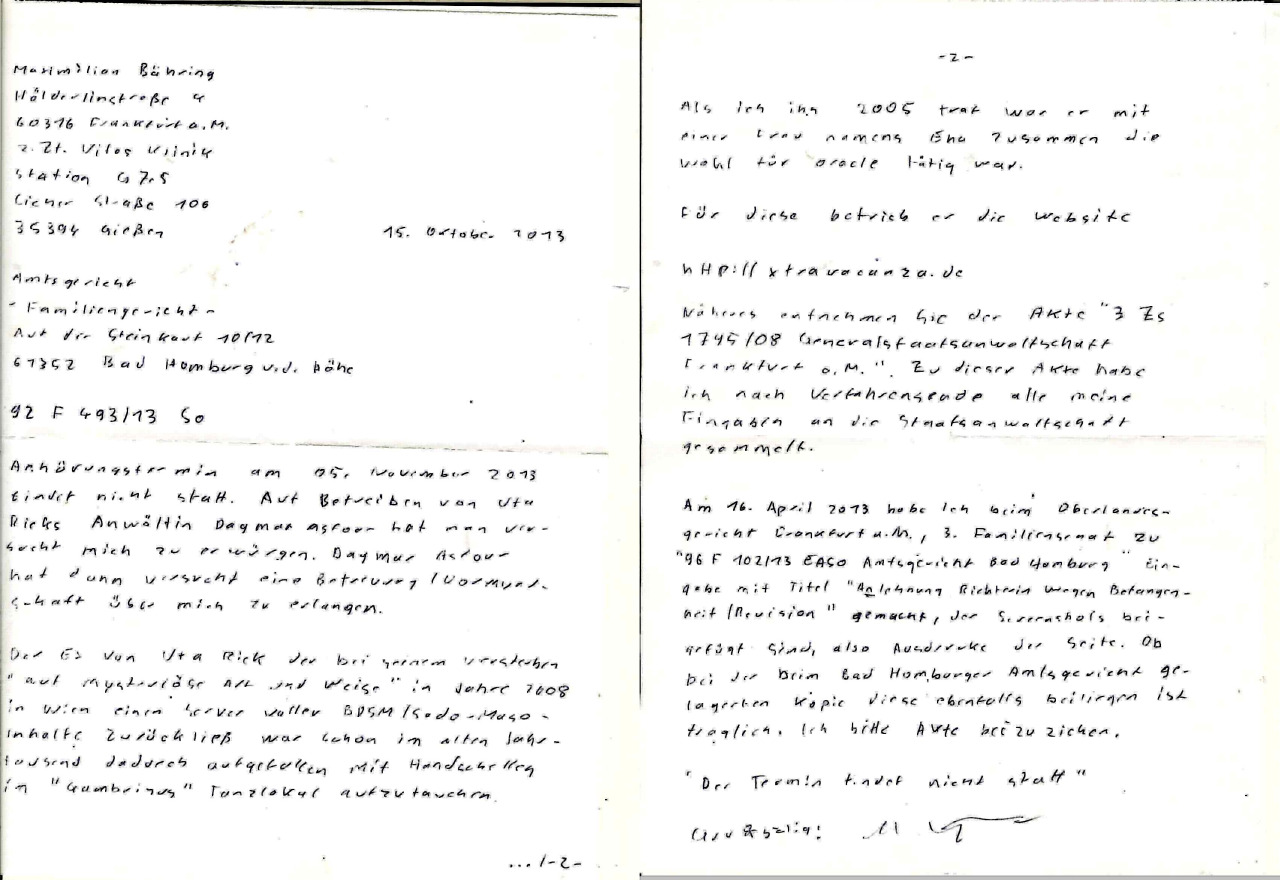 Maximilian Bähring
Hölderlinstraße 4
60316 Frankfurt a.M.
z. Zt. Vitos Klinik
Station G 7.5
Licher Straße 106
35394 Gießen
15. Oktober 2013
Amtsgericht
- Familiengericht -
Auf der Steinkaut 10/12
61352 Bad Homburg v.d. Höhe
92 F 493/13 SO
Anhörungstermin am 05. November 2013
findet nicht statt. Auf Betreiben von Uta
Ricks Anwältin Dagmar Asfour hat man ver-
sucht mich zu erwürgen. Dagmar Asfour
hat dann versucht eine Betreuung/Vormund-
schaft über mich zu erlangen.
Der Ex von Uta Rick der bei seinem versterben
"auf mysteriöse Art und Weise" im Jahre 2008
in Wien einen Server voller BDSM/Sado-Maso-
Inhalte zurückließ war schon im alten Jahr-
tausend dadurch aufgefallen mit Handschellen
im "Gambrinus" Tanzlokal aufzutauchen.
.../-2-
-2-
Als ich ihn 2005 traf war er mit
einer Frau namens Ena zusammen die
wohl für oracle tätig war.
Für diese betrieb er die website
http://xtravacanza.de
Näheres entnehmen Sie der Akte "3 Zs
1795/08 Generalstaatsanwaltschaft
Frankfurt a.M.". Zu dieser Akte habe
ich nach Verfahrensende alle meine
Eingaben an die Staatsanwaltschaft
gesammelt.
Am 16. April 2013 habe ich beim Oberlandes-
gericht Frankfurt a.M., 3. Familiensenat zu
"96 F 102/13 EASO Amtsgericht Bad Homburg" Ein-
gabe mit Titel "Anlehnung Richterin wegen Befangen-
heit/Revision" gemacht, der Screenshots bei-
gefügt sind, also Ausdrucke der Seite. Ob
bei der beim Bad Homburger Amtsgericht ge-
lagerten Kopie diese ebenfalls beiliegen ist
fraglich. Ich bitte Akte beizuziehen.
"Der Termin findet nicht statt"